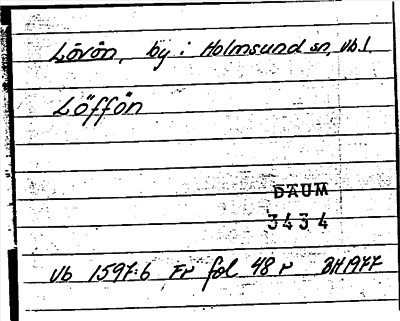 Lövön, by i Holmsund sn, Vb l.
Löffön
DAUM
3434
Vb 1597:6 Fr fol 48 r BH 1977